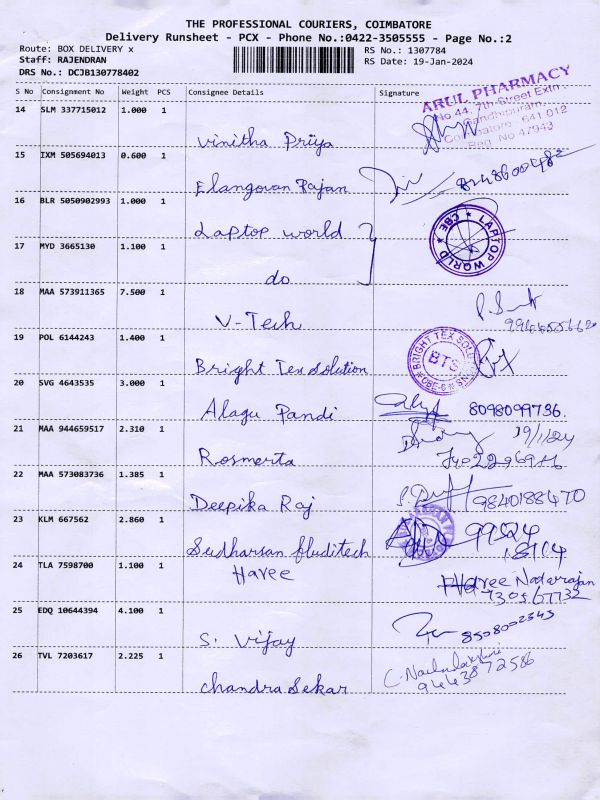 THE PROFESSIONAL COURIERS, COIMBATORE
Delivery Runsheet - PCX - Phone No.:0422-3505555 - Page No.:2
Route: BOX DELIVERY x RS No.: 1307784
Staff: RAJENDRAN RS Date: 19-Jan-2024
DRS No.: DCJB130778402
S No Consignment No Weight PCS Consignee Details Signature
ARUL PHARMACY
No 44, 7th Street Extn
Gandhipuram,
Coimbatore 641 012
Reg. No 47943
14 SLM 337715012 1.000 1
Vinitha Priya
15 IXM 505694013 0.600 1
Elangovan Rajan
16 BLR 5050902993 1.000 1
Laptop world
LAPTOP WORLD CBE
17 MYD 3665130 1.100 1
do
18 MAA 573911365 7.500 1
V-Tech
19 POL 6144243 1.400 1
BRIGHT TEX SOLUTIONS
BTS
CBE-6
Bright Tex solution
20 SVG 4643535 3.000 1
Alagu Pandi 8098099736.
21 MAA 944659517 2.310 1
19/1/24
Rosmerta
22 MAA 573083736 1.385 1
Deepika Raj 9840188470
23 KLM 667562 2.860 1
99524
18104
Sudharsan fluditech
24 TLA 7598700 1.100 1
Haree
Haree Natarajan
730567732
25 EDQ 10644394 4.100 1
8508002343
S. Vijay
26 TVL 7203617 2.225 1
9443872586
chandra Sekar